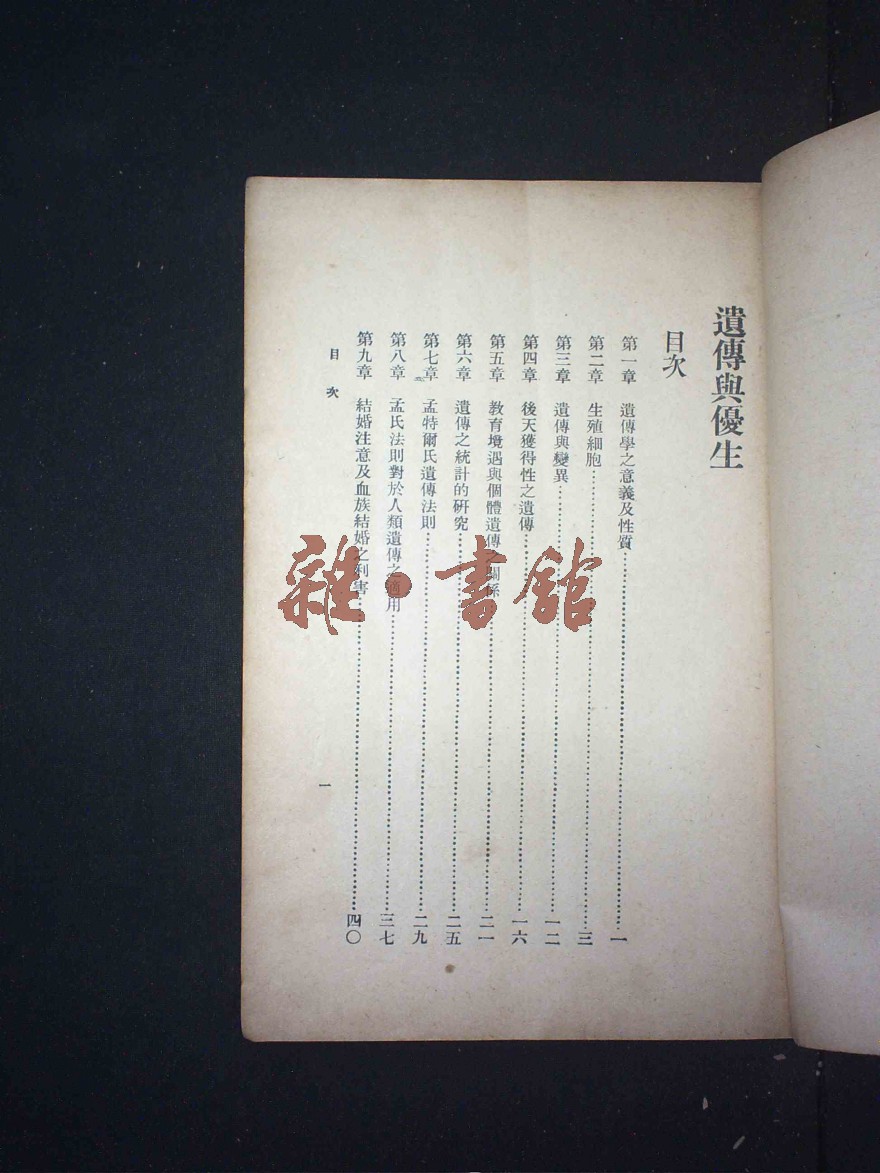 遺傳與優生
目次
第一章 遺傳學之意義及性質……一
第二章 生殖細胞……三
第三章 遺傳與變異……一二
第四章 後天獲得性之遺傳……一六
第五章 教育境遇與個體遺傳之關係……二一
第六章 遺傳之統計的研究……二五
第七章 孟特爾氏遺傳法則……二九
第八章 孟氏法則對於人類遺傳之適用……三七
第九章 結婚注意及血族結婚之利害……四〇
目次
一
雜·書館